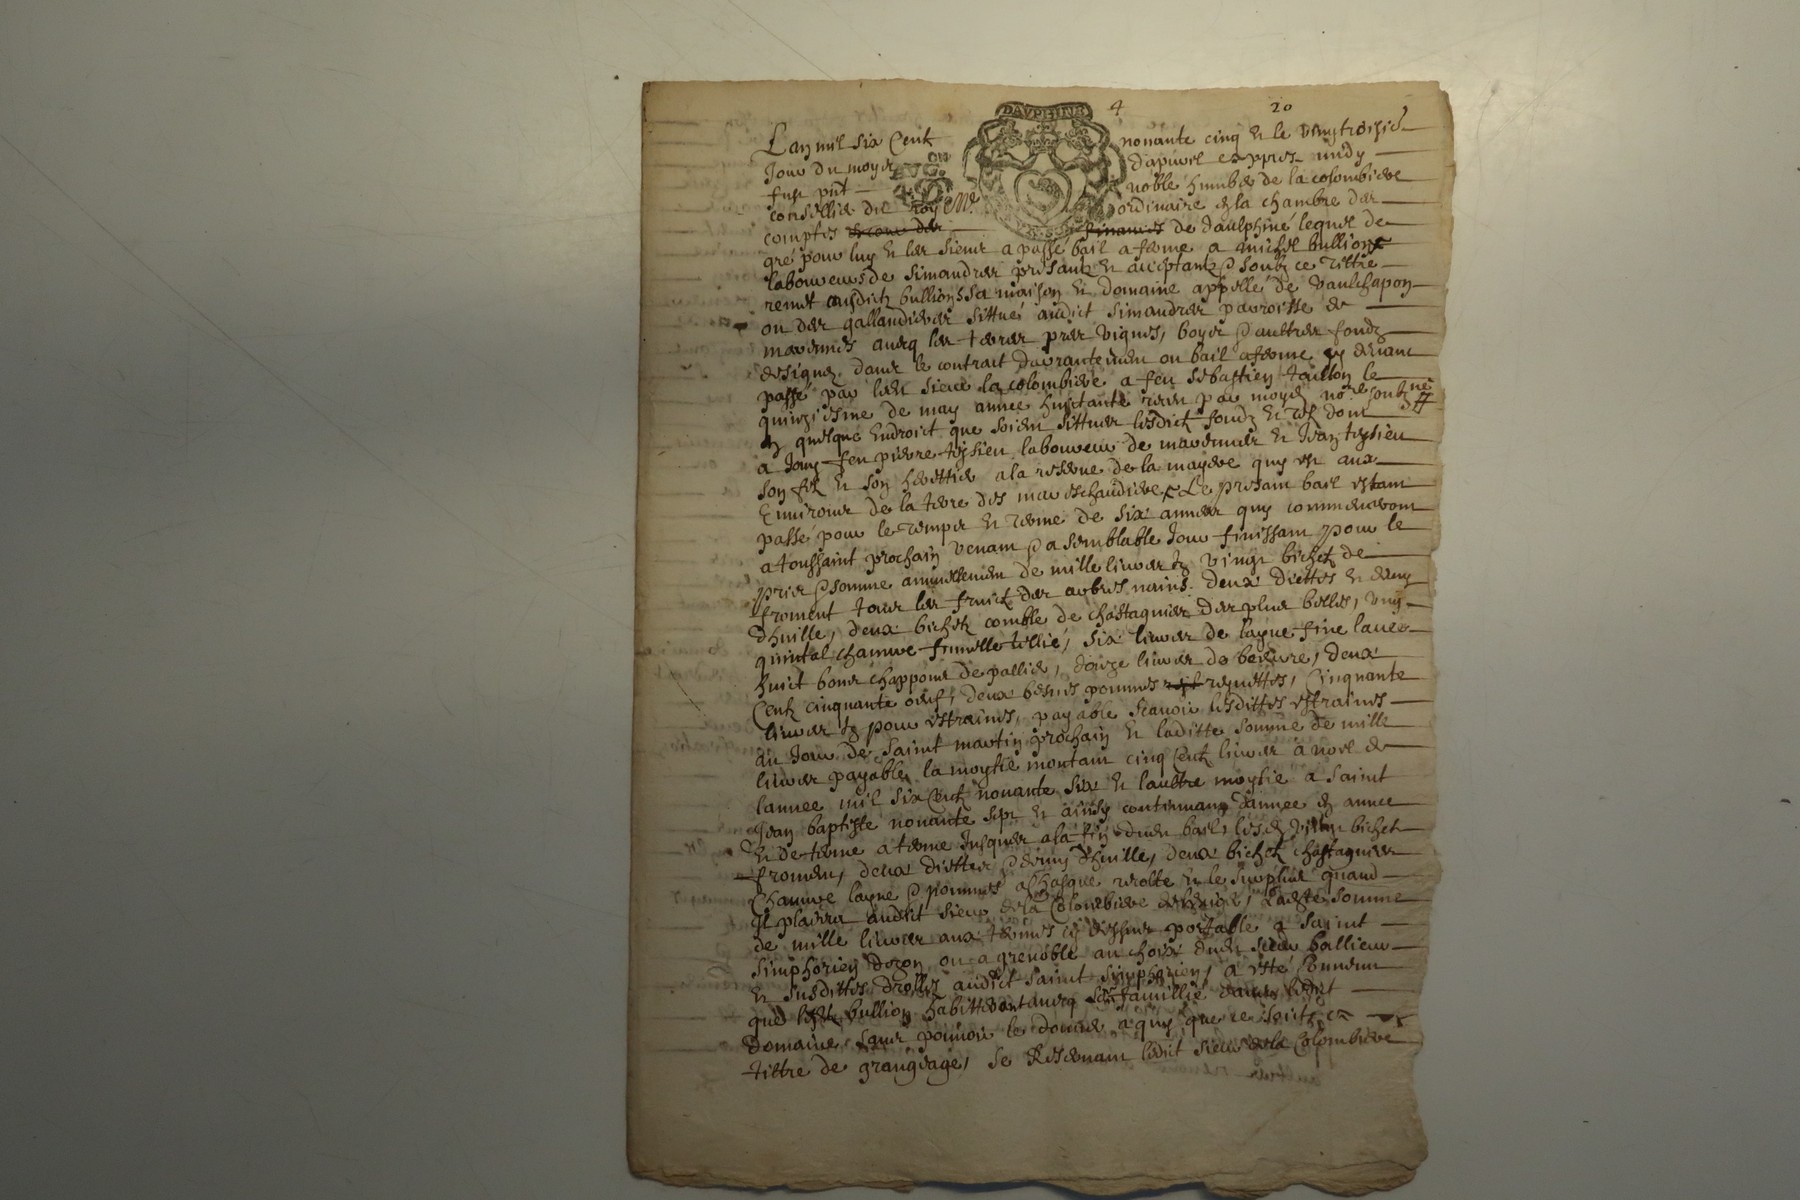 DAVPHINE 4 20
Lan mil six Cent nonante cinq et le vingtroisie
Jour du moys dapvril appres midy
fust pnt noble humber de la colombiere
conseillier du Roy Me ordinaire en la chambre des
comptes de daulphiné lequel de
gré pour luy et les siens a passé bail a ferme a michel bullion
laboureurs de simandres presants et acceptants soubz ce tittre
remet ausdicts bullions sa maison et domaine appellé de vaulchapon
ou des gallandieres sittué audict simandres parroisse de
marennes avecq les terres pres vignes, boys & aultres fondz
designez dans le contrait darrantement ou bail a ferme cy devant
passé par led sieur la colombiere a feu sebastien toullon le
quinziesme de may année huictante par moydit nore soubzne
en quelque endroict que soient sittues lesdicts fondz et dont
a Jouy feu pierre teysieu laboureur de marennes et Jean teysieu
son filz et son herettier a la reserve de la mayere quy est aux
Environs de la terre des mareschaudieres Le presant bail estant
passé pour le temps et terme de six années quy commenceront
a toussaint prochain venant & a semblable Jour finissant pour le
prix & somme annuellement de mille livres vingt bichetz de
froment tous les fruictz des arbres nains deux diettes et demy
dhuille, deux bichetz comble de chastagnies des plus belles, ung
quintal chanvre femelle tillié, six livres de layne fine lavee
huict bons chappons de pallier, douze livres de beurre, deux
Centz cinquante oeufs, deux bennes pommes renettes, Cinquante
livres pour estraines, payable scavoir lesdittes estraines
au Jour de Saint martin prochain et laditte somme de mille
livres payables la moytié montant cinq centz livres a noel de
lannee mil six Centz nonante six et laultre moytié a saint
Jean baptiste nonante sept et ainsy continuant dannee en annee
et de terme a terme Jusques a la fin dudit bail, lesd vingt bichetz
froment, deux diettes & demy dhuille, deux bichetz chastagnies
Chanvre layne & pommes a chasque reolte et le surplus quand
Il plaira audict sieur de la Colombiere Ladte somme
de mille livres aux termes cy dessus portable a saint
simphorien dozon ou a grenoble au choix dud sieur ballieur
et susdittes audict saint simphorien, a esté convenu
que bullion habitteront avecq famille ledict
domaine, sans pouvoir le donner a quy que ce soict en
tittre de grangeage, se Reservant ledict sieur de la Colombiere